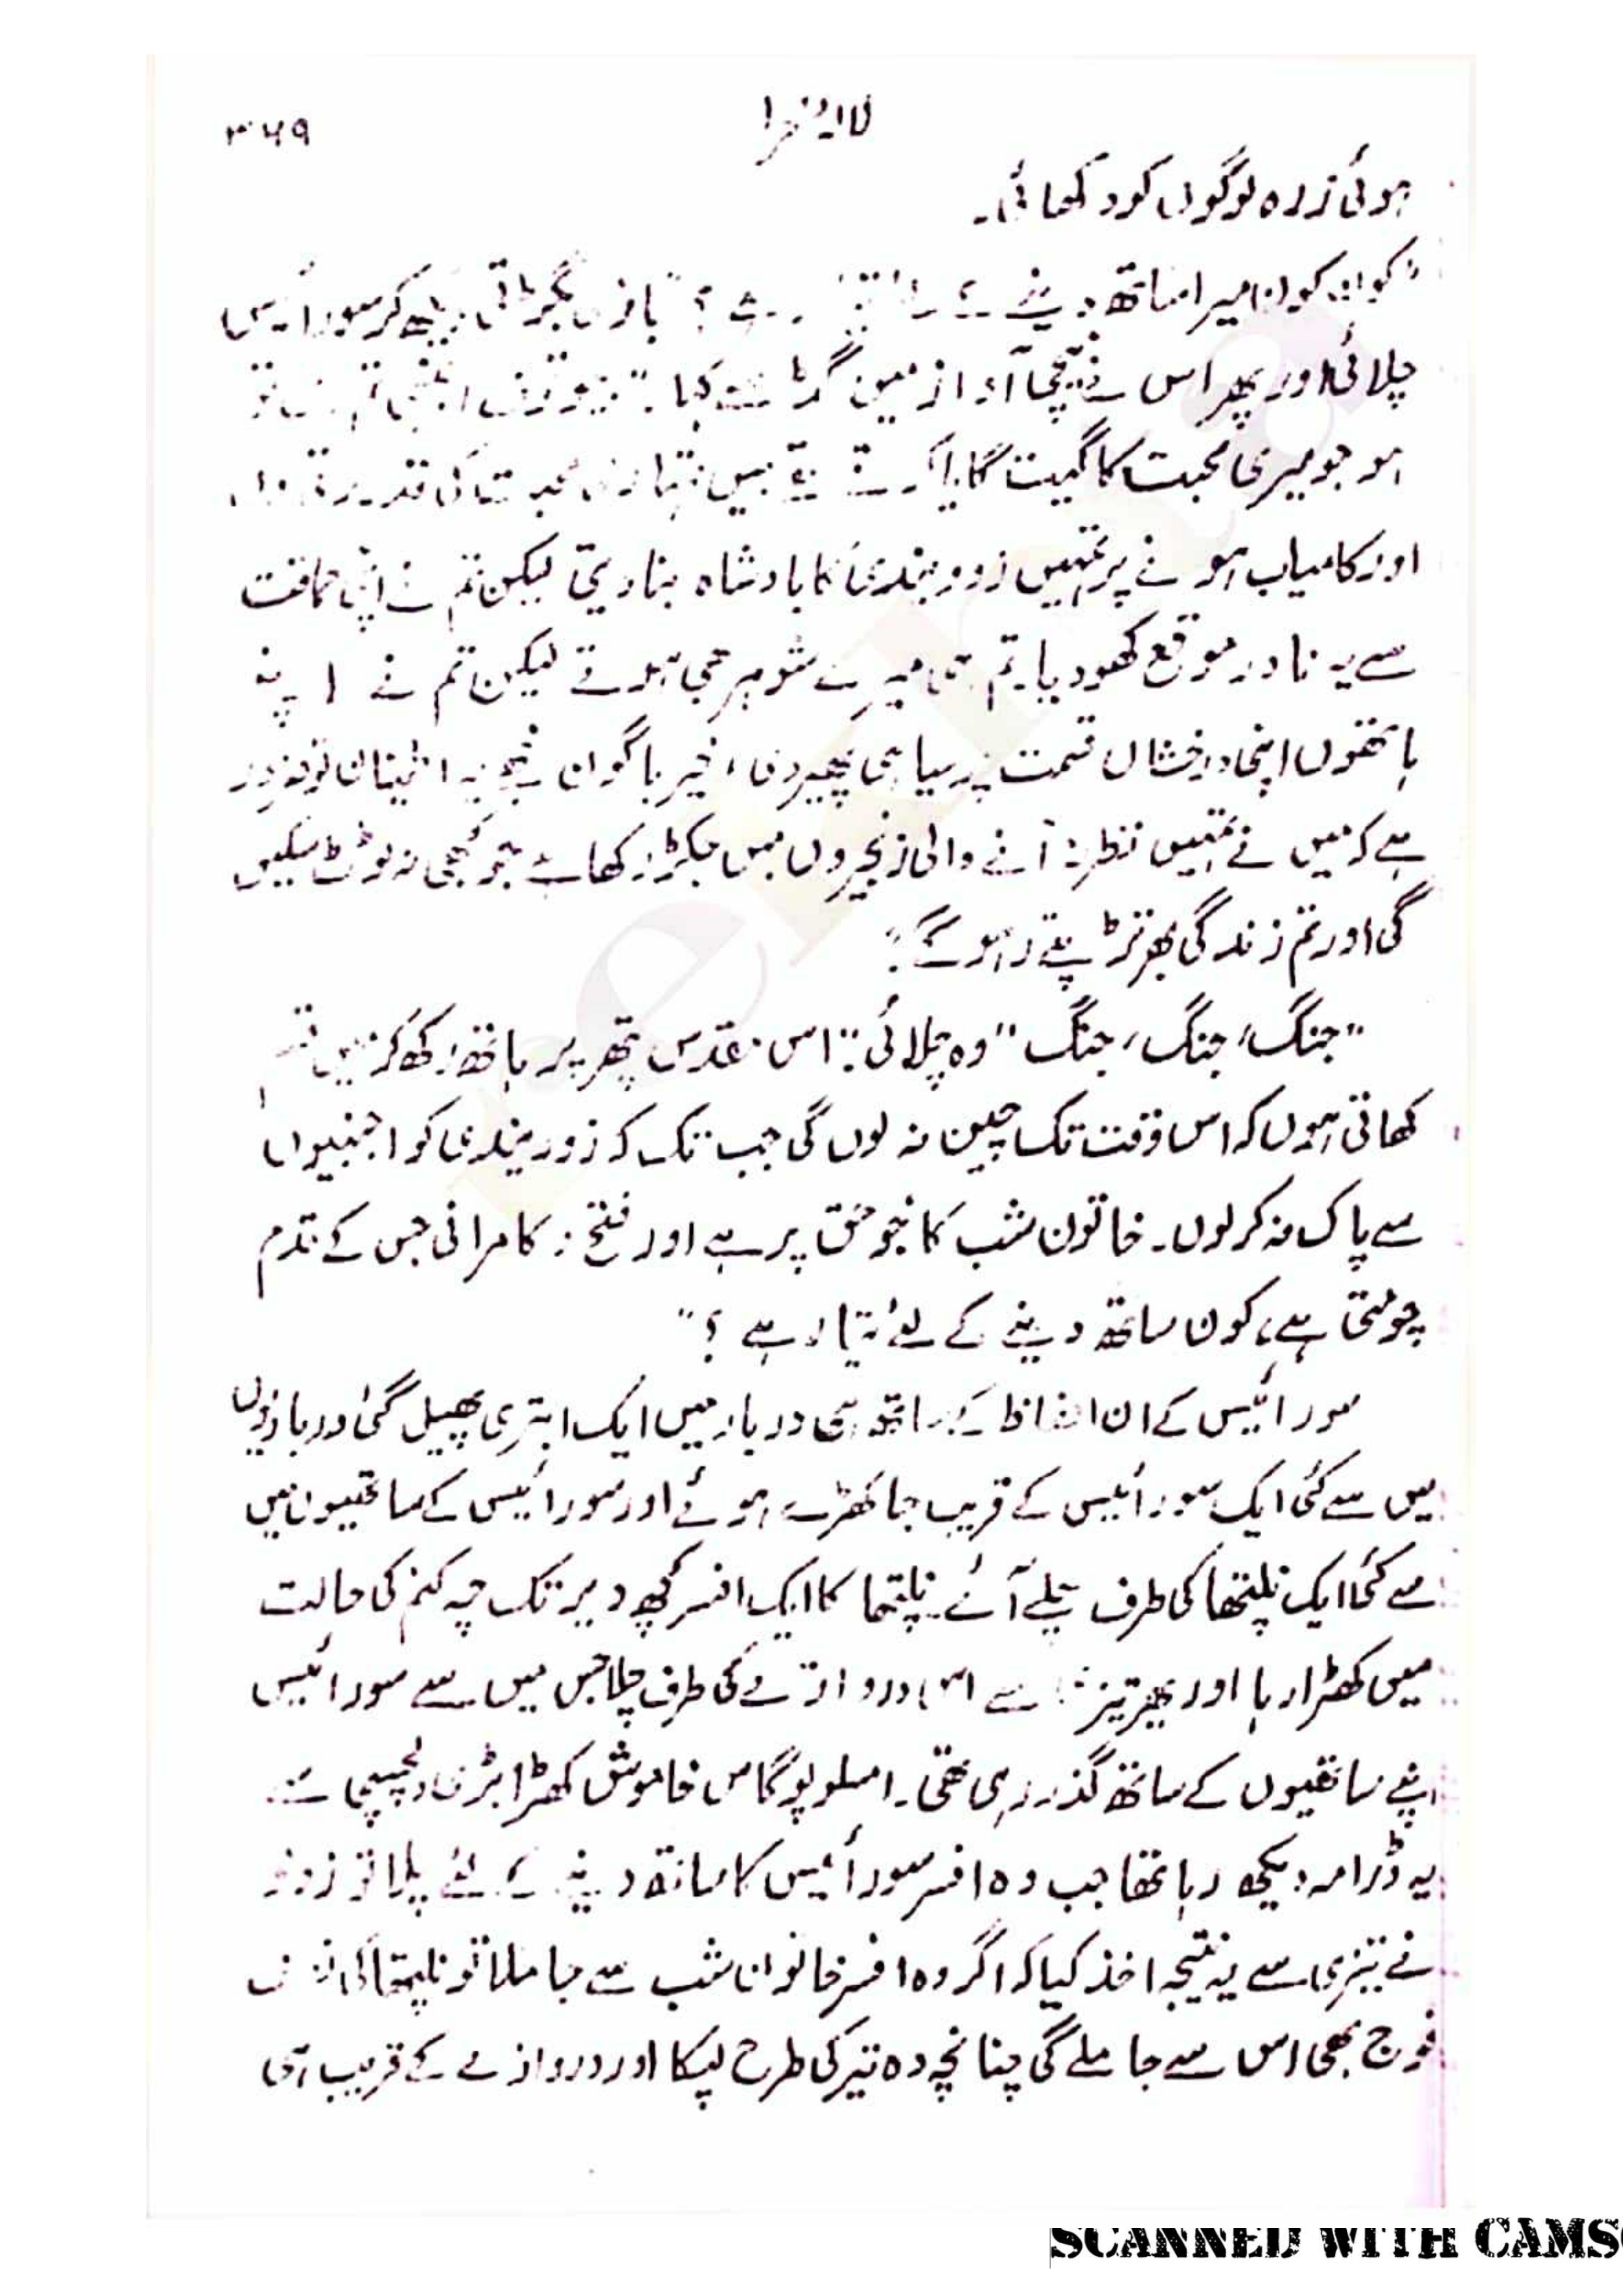 لالۂ صحرا
۳۶۹
ہوئی زرہ لوگوں کو دکھائی۔
"کون کون میرا ساتھ دینے ؟" بازی بگڑتی دیکھ کر سورائیس
چلائی اور پھر اس نے نیچی آواز میں سے کہا۔ "بیوقوف اجنبی تم
ہو جو میری محبت کا گیت گایا کرتے تھے میں تمہاری محبت کی قدر کرتی
اور کامیاب ہونے پر تمہیں زوو ینڈی کا بادشاہ بنا دیتی لیکن تم نے اپنی حماقت
سے یہ نادر موقع کھو دیا۔ تم ہی میرے شوہر بھی ہوتے لیکن تم نے اپنے
ہاتھوں اپنی درخشاں قسمت پر سیاہی پھیر دی، خیر باگوان مجھے یہ اطمینان تو ضرور
ہے کہ میں نے تمہیں نظر نہ آنے والی زنجیروں میں جکڑ رکھا ہے جو کبھی نہ ٹوٹ سکیں
گی اور تم زندگی بھر تڑپتے رہو گے۔"
"جنگ، جنگ، جنگ" وہ چلائی۔ "اس مقدس پتھر پر ہاتھ رکھ کر میں قسم
کھاتی ہوں کہ اس وقت تک چین نہ لوں گی جب تک کہ زوو ینڈی کو اجنبیوں
سے پاک نہ کر لوں۔ خاتون شب کا جو حق پر ہے اور فتح و کامرانی جس کے قدم
چومتی ہے، کون ساتھ دینے کے لئے تیار ہے؟"
سورائیس کے ان الفاظ کے ساتھ ہی دربار میں ایک ابتری پھیل گئی درباریوں
میں سے کئی ایک سورائیس کے قریب جا کھڑے ہوئے اور سورائیس کے ساتھیوں میں
سے کئی ایک نلپتھا کی طرف چلے آئے۔ نلپتھا کا ایک افسر کچھ دیر تک چہ کنم کی حالت
میں کھڑا رہا اور پھر تیزی سے اس دروازے کی طرف چلا جس میں سے سورائیس
اپنے ساتھیوں کے ساتھ گذر رہی تھی۔ امسلوپوگاس خاموش کھڑا بڑی دلچسپی سے
یہ ڈرامہ دیکھ رہا تھا جب وہ افسر سورائیس کا ساتھ دینے کے لئے چلا تو زولو
نے تیزی سے یہ نتیجہ اخذ کیا کہ اگر وہ افسر خاتون شب سے جا ملا تو نلپتھا کی
فوج بھی اس سے جا ملے گی چنانچہ وہ تیر کی طرح لپکا اور دروازے کے قریب ہی
SCANNED WITH CAMS